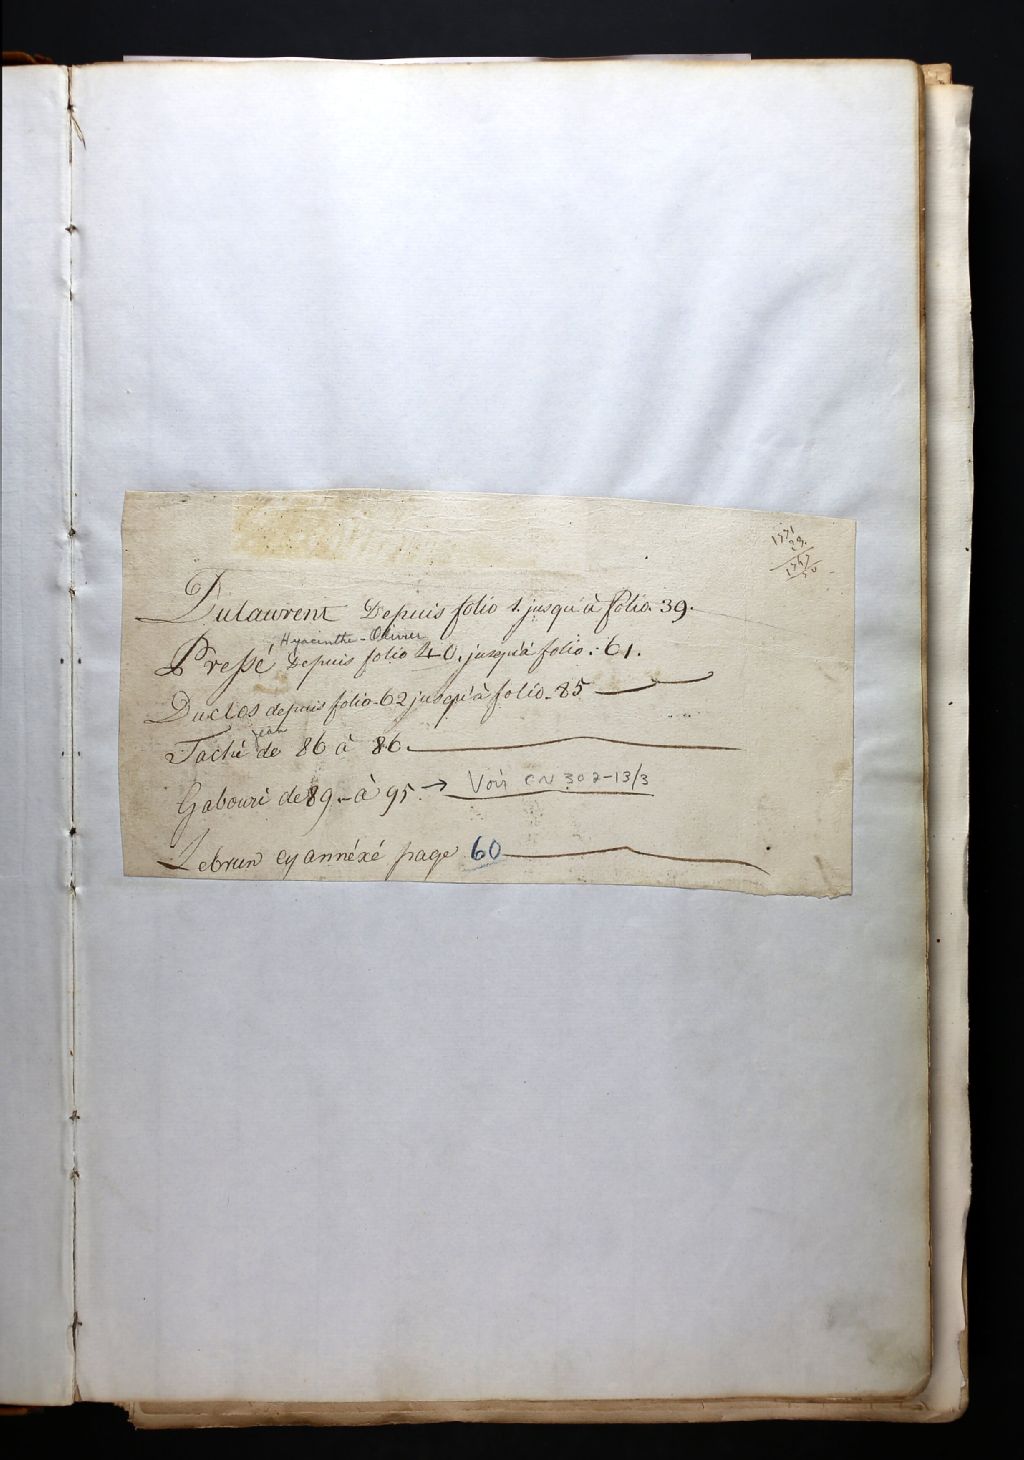 1771
29.
Dulaurent Depuis folio 1. jusqu'à folio. 39.
Hyacinthe-Olivier
Pressé Depuis folio 40. jusqu'à folio. 61.
Duclos depuis folio. 62 jusqu'à folio. 85
jean
Taché de 86 à 86.
Gabouri de 89. à 95. → Voir CN 302-13/3
Lebrun cy annéxé page 60